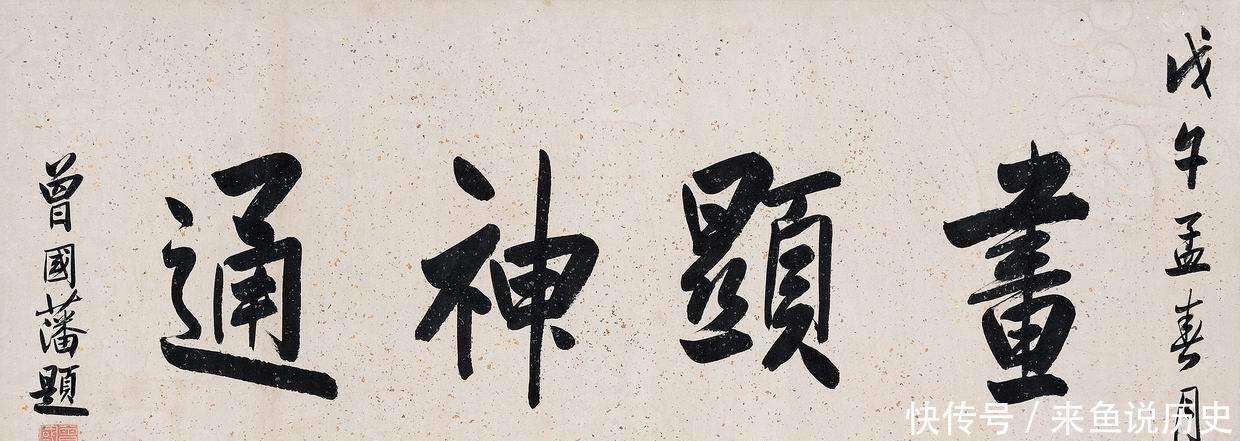 戊午孟春月
畫顯神通
曾國藩題
快传号 / 来鱼说历史